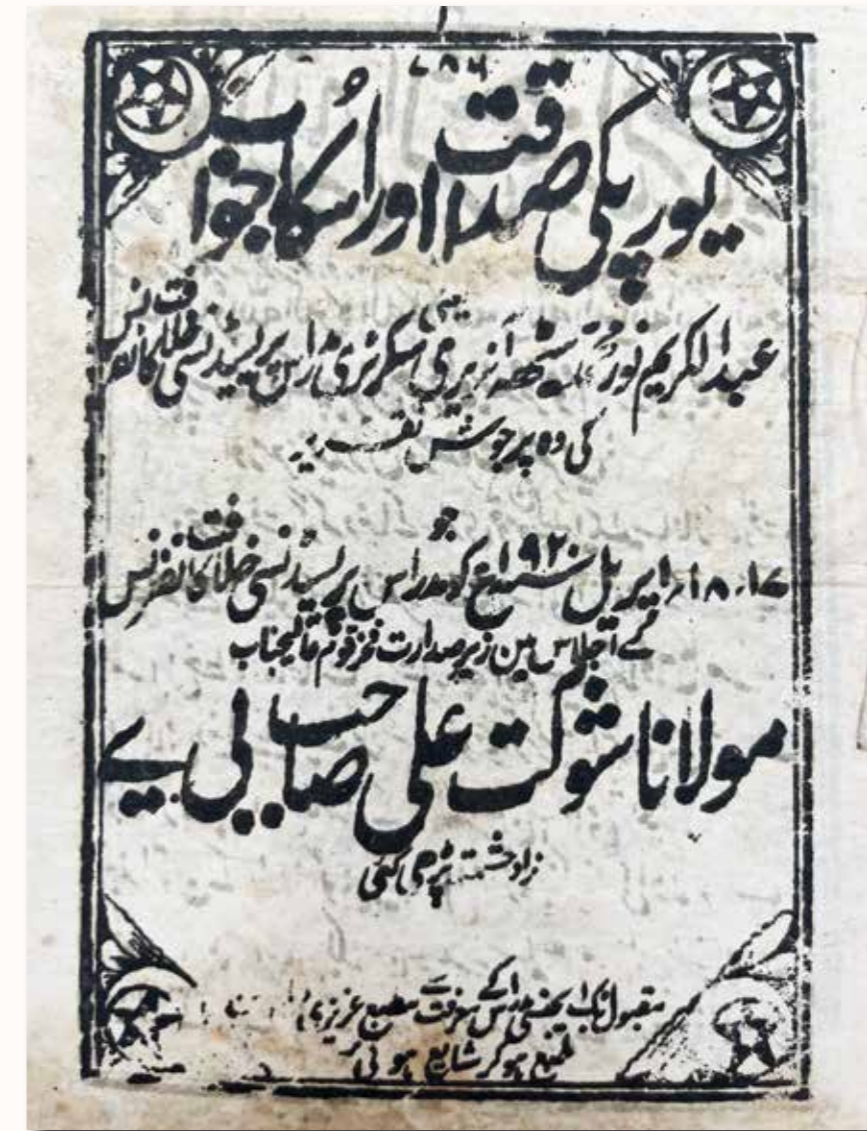 ۷۸۶
یورپ کی صداقت اور اُسکا جواب
یعنی
عبدالکریم نور محمد سیٹھ آنریری سکرٹری مدراس پریسیڈنسی خلافت کانفرنس
کی وہ پرجوش تقریر
جو
۱۷ـ۱۸ اپریل سنہ ۱۹۲۰ع کو مدراس پریسیڈنسی خلافت کانفرنس
کے اجلاس مین زیر صدارت فخر قوم عالیجناب
مولانا شوکت علی صاحب بی یے
زاد حشمتہ پڑھی گئی
مقبول بک ایجنسی مدراس کے معرفت سے مطبع عزیزی
طبع ہو کر شایع ہوئی